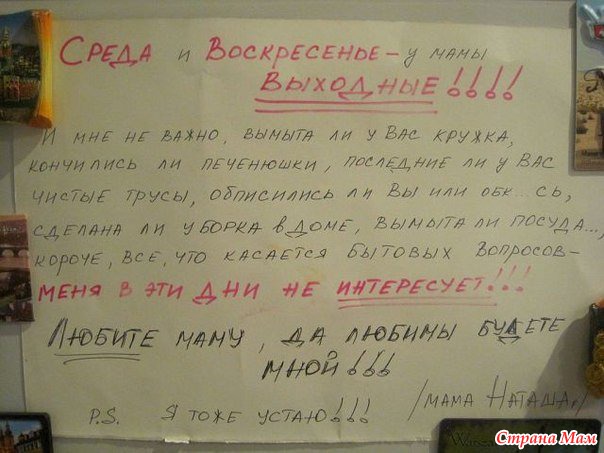 Среда и Воскресенье – у мамы
выходные!!!!
И мне не важно, вымыта ли у Вас кружка,
кончились ли печенюшки, последние ли у Вас
чистые трусы, обписились ли Вы или обк...сь,
сделана ли уборка в доме, вымыта ли посуда...,
короче, все, что касается бытовых вопросов –
меня в эти дни не интересует!!!
Любите маму, да любимы будете
мной!!!
/мама Наташа/
P.S. Я тоже устаю!!!
Страна Мам